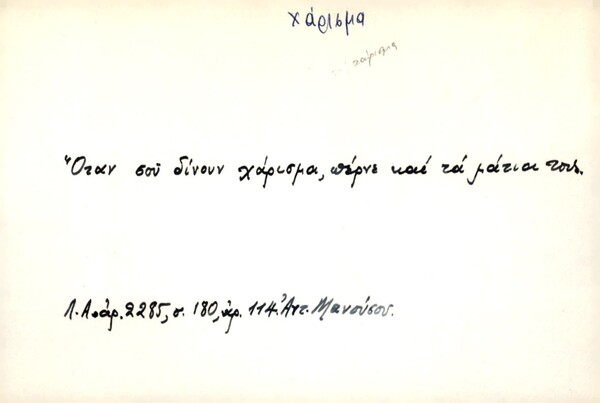 χάρισμα
χάρισμα
Ὅταν σοῦ δίνουν χάρισμα, πέρνε καὶ τά μάτια τους.
Λ.Α. ἀρ. 2285, σ. 180, ἀρ. 114. Ἀντ. Μανούσου.